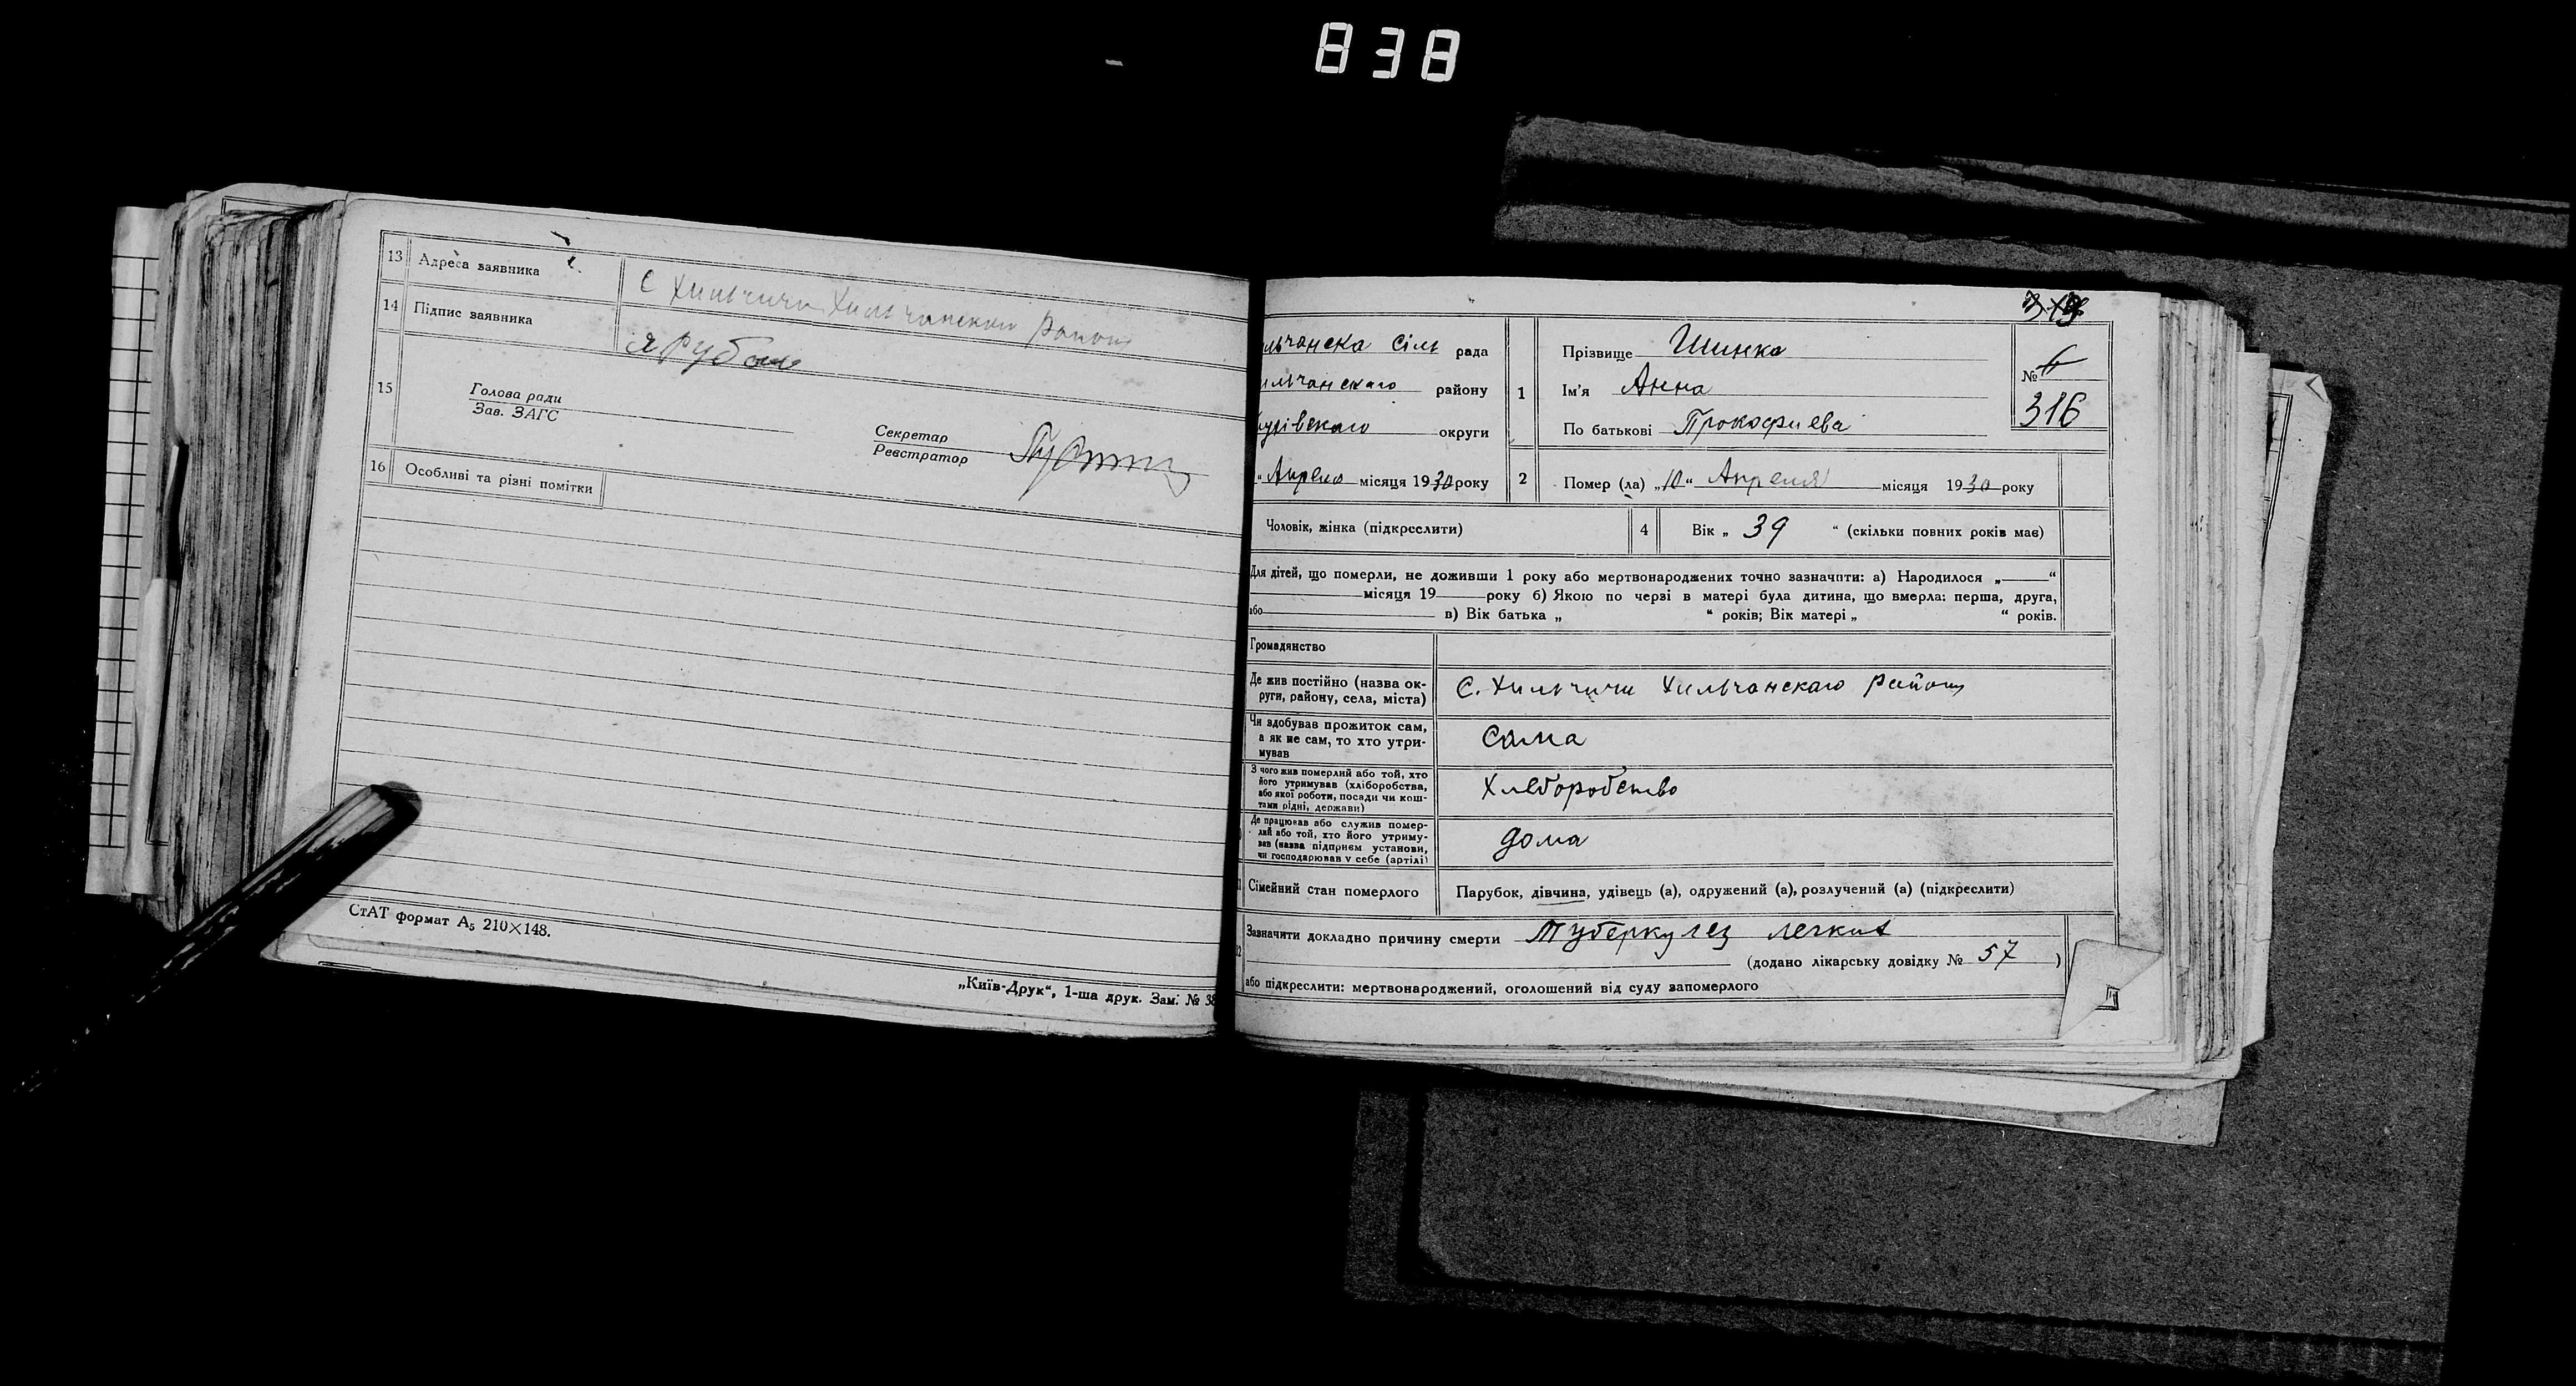 838
13 Адреса заявника С Хильчичи Хильчанскаго Району
14 Підпис заявника
15 Голова ради
Зав. ЗАГС
Секретар
Реєстратор
16 Особливі та різні помітки
СтАТ формат А₅ 210×148.
„Київ-Друк“, 1-ша друк. Зам. № 38
льчанска Сіль рада
ильчанскаго району
округи
“ Апреля місяця 1930 року
1 Прізвище Шинка
Ім'я Анна
По батькові Прокофиева
№ 6
316
2 Помер (ла) „10“ Апреля місяця 1930 року
Чоловік, жінка (підкреслити)
4 Вік „ 39 “ (скільки повних років має)
Для дітей, що померли, не доживши 1 року або мертвонароджених точно зазначити: а) Народилося „ “
місяця 19 року б) Якою по черзі в матері була дитина, що вмерла: перша, друга,
або в) Вік батька „ “ років; Вік матері „ “ років.
Громадянство
Де жив постійно (назва ок-
руги, району, села, міста)
С. Хильчичи Хильчанскаго району
Чи здобував прожиток сам,
а як не сам, то хто утри-
мував
Сама
З чого жив померлий або той, хто
його утримував (хліборобства,
або якої роботи, посади чи кош-
тами рідні, держави)
Хлеборобство
Де працював або служив помер-
лий або той, хто його утриму-
вав (назва підприєм установи,
чи господарював у себе (артілі)
дома
Сімейний стан померлого
Парубок, дівчина, удівець (а), одружений (а), розлучений (а) (підкреслити)
Зазначити докладно причину смерти Туберкулез легких
(додано лікарську довідку № 57 )
або підкреслити: мертвонароджений, оголошений від суду запомерлого